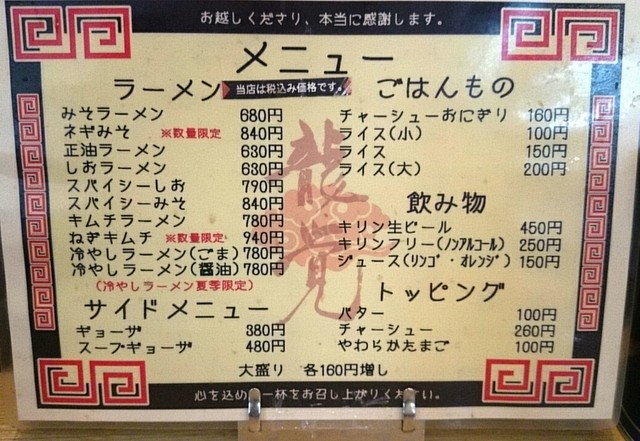 お越しくださり、本当に感謝します。
メニュー
ラーメン
当店は税込み価格です。
みそラーメン 680円
ネギみそ ※数量限定 840円
正油ラーメン 630円
しおラーメン 630円
スパイシーしお 790円
スパイシーみそ 840円
キムチラーメン 780円
ねぎキムチ ※数量限定 940円
冷やしラーメン(ごま) 780円
冷やしラーメン(醤油) 780円
(冷やしラーメン夏季限定)
サイドメニュー
ギョーザ 380円
スープギョーザ 480円
ごはんもの
チャーシューおにぎり 160円
ライス(小) 100円
ライス 150円
ライス(大) 200円
飲み物
キリン生ビール 450円
キリンフリー(ノンアルコール) 250円
ジュース(リンゴ・オレンジ) 150円
トッピング
バター 100円
チャーシュー 260円
やわらかたまご 100円
大盛り 各160円増し
龍覚
心を込め 一杯をお召し上がりください。